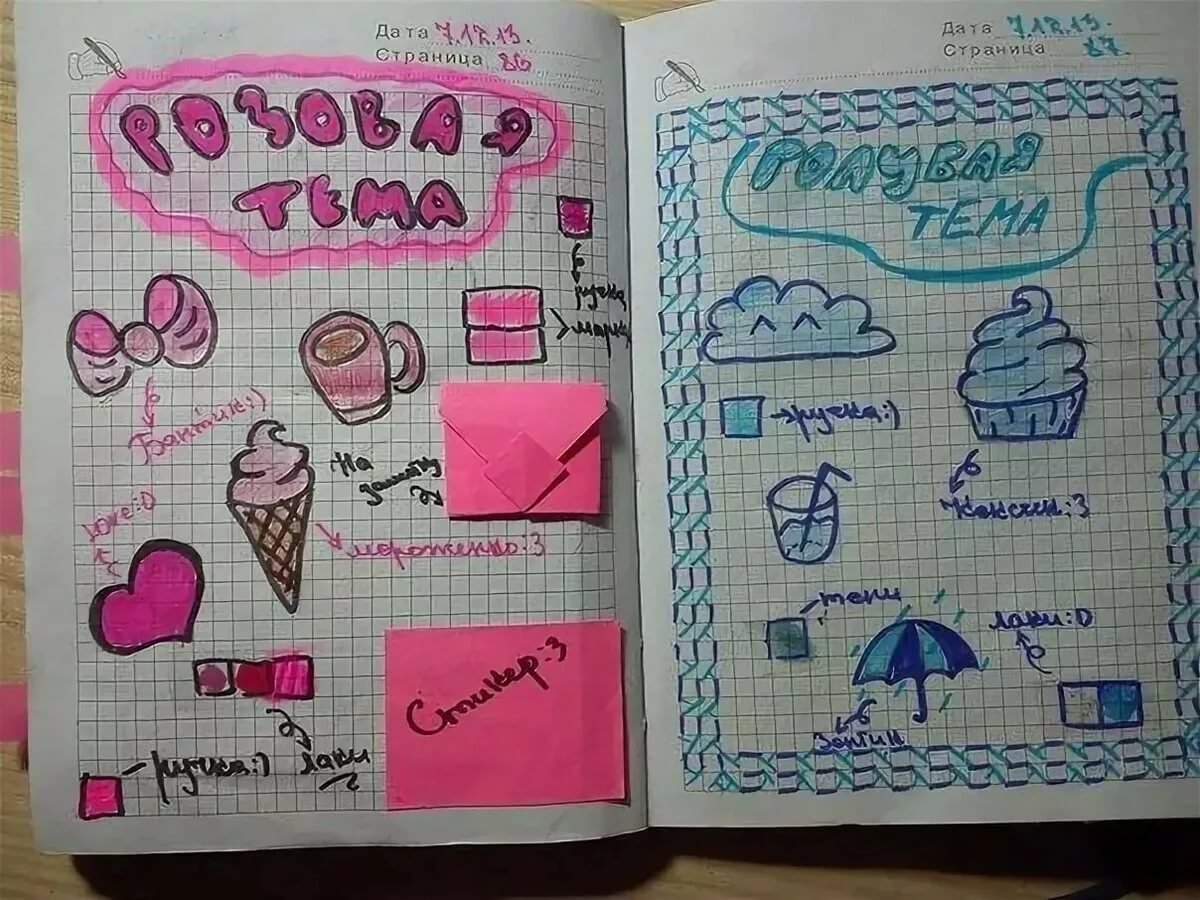 Дата 7.12.13.
Страница 86
РОЗОВАЯ
ТЕМА
ручка
Бантик:)
На
тоже:D
мороженко:3
Стикер:3
ручка:)
лаки
Дата 7.12.13.
Страница 87
ГОЛУБАЯ
ТЕМА
ручка:)
Кексик:3
тени
лаки:D
Зонтик